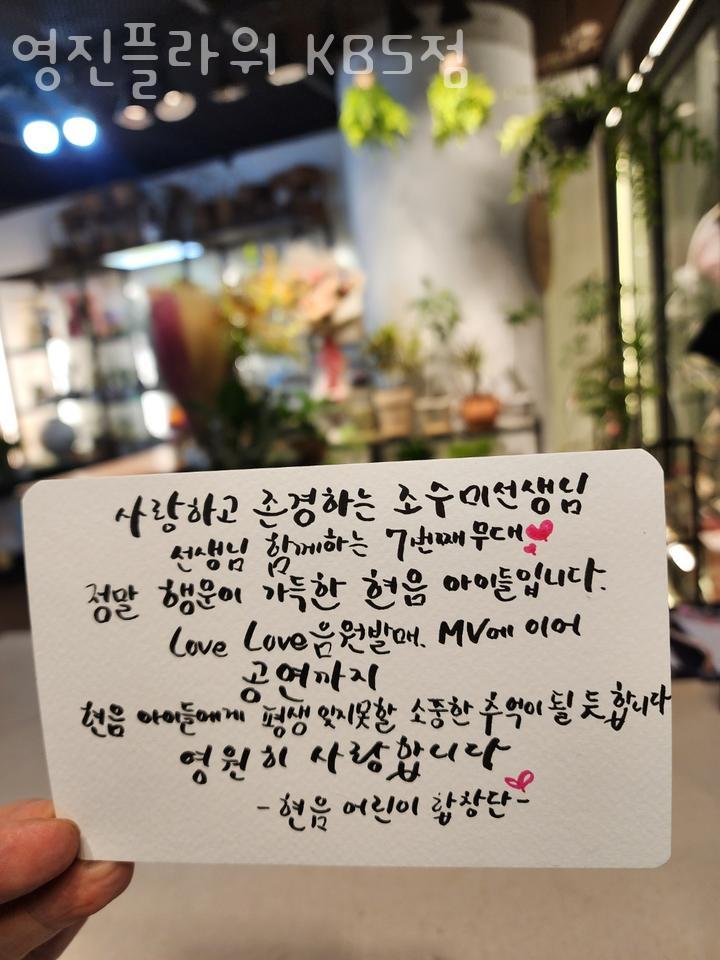 영진플라워 KBS점
사랑하고 존경하는 조수미선생님
선생님 함께하는 7번째 무대
정말 행운이 가득한 현음 아이들입니다.
Love Love음원발매. MV에 이어
공연까지
현음 아이들에게 평생 잊지못할 소중한 추억이 될 듯 합니다
영원히 사랑합니다
- 현음 어린이 합창단-